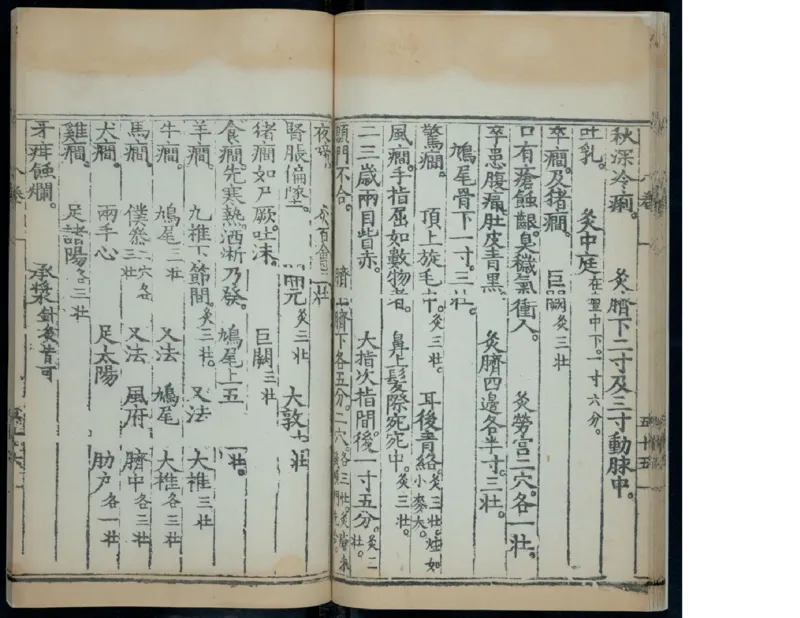 秋深冷痢。 灸臍下二寸及三寸動脉中。
吐乳。 灸中庭在膻中下。一寸六分。
卒癎。及猪癎。 巨闕灸三壯
口有瘡蝕齦。臭穢氣衝人。 灸勞宮二穴。各一壯。
卒患腹痛。肚皮青黑 灸臍四邊各半寸。三壯。
鳩尾骨下一寸。三壯。
驚癎。 頂上旋毛中。灸三壯。 耳後青絡。灸三壯。炷如小麥大。
風癎。手指屈如數物者。 鼻上髮際宛宛中。灸三壯。
二三歲兩目眥赤。 大指次指間後一寸五分。灸二壯。
顖門不合。 臍 臍下各五分。二穴。各三壯。
夜啼。 灸百會三壯
腎脹偏墜。 關元灸三壯 大敦七壯
猪癎如尸厥。吐沫。 巨闕三壯
食癎。先寒熱。洒淅乃發。 鳩尾上五 壯。
羊癎。 九椎下節間。灸三壯。 又法 大椎三壯
牛癎。 鳩尾三壯 又法 鳩尾 大椎各三壯
馬癎。 僕參二穴各三壯 又法 風府 臍中各三壯
犬癎。 兩手心 足太陽 肋户各一壯
雞癎。 足諸陽各三壯
牙疳蝕爛。 承漿針灸皆可
卷
五十五